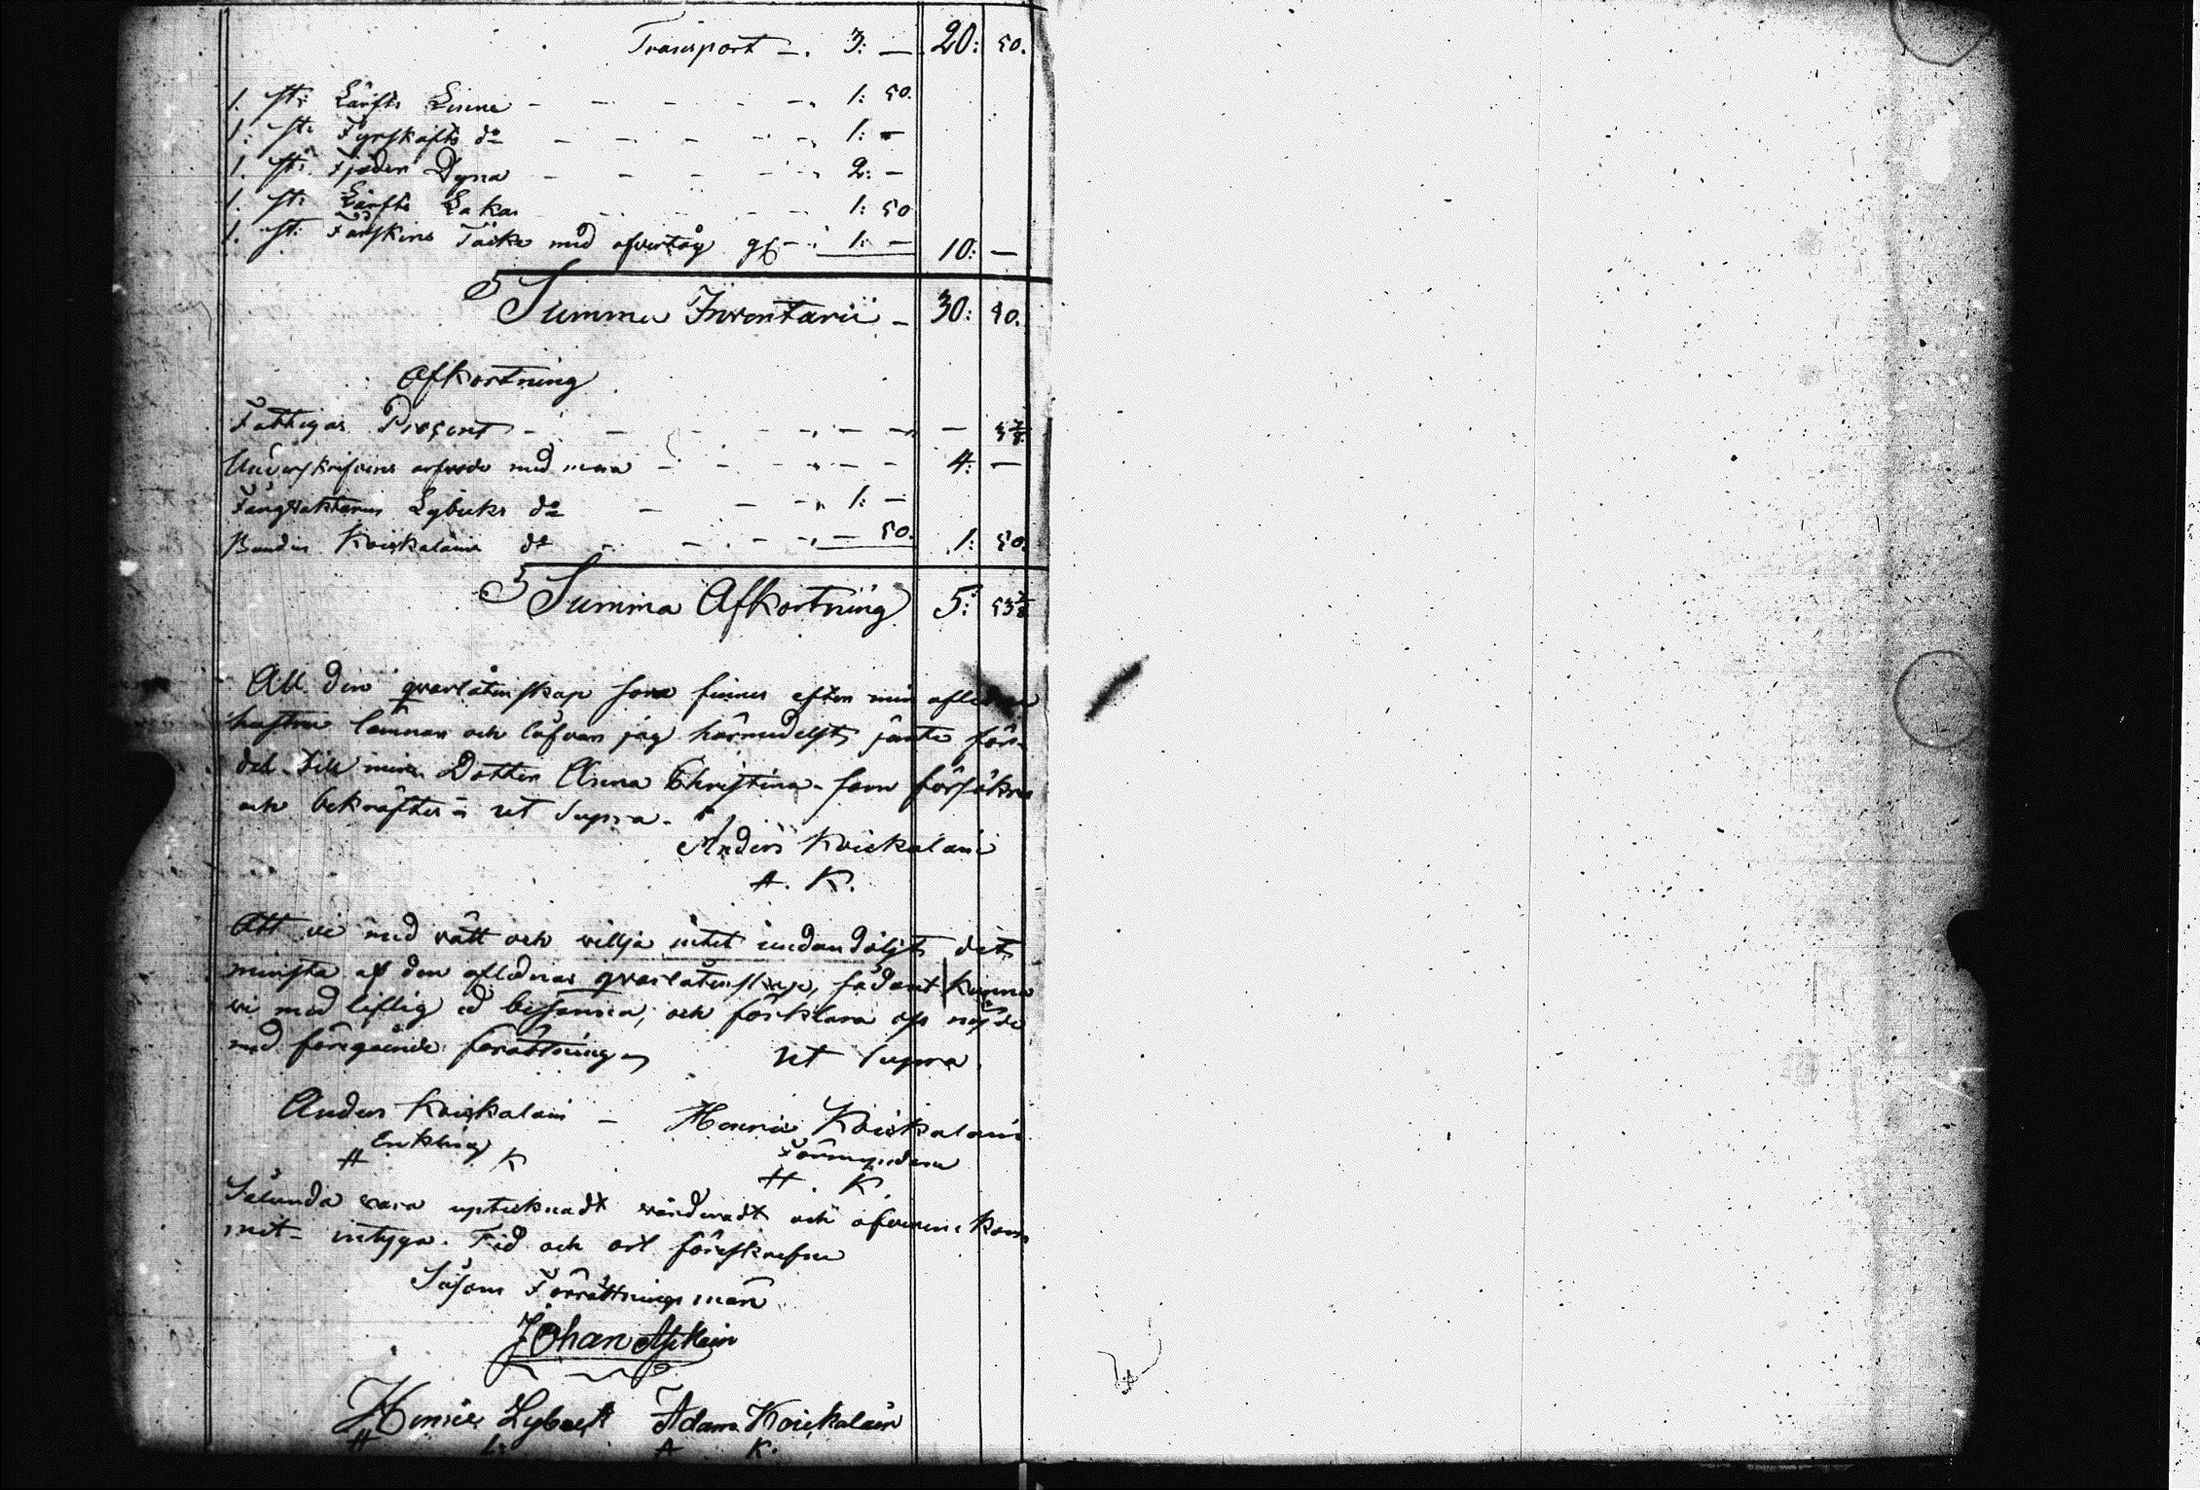 Transport - . 3: — 20: 50.
1. st: Lärfts Linne - - - - - 1: 50.
1. st: Fyrskafts do - - - - - 1: —
1. st: Fjäder Dyna - - - - - 2: —
1. st: Lärfts Lakan - - - - 1: 50
1. st: Fårskins Täcke med ofvertåg - 1: — 10: —
Summa Inventarii - 30: 50.
Afkortning
Fattigas Procent - - - - - — 3 7/8
Underskrifvens arfvode med mera - - - - 4: —
Lybecks do - - - 1: —
Bonden Koiskalains do - - - — 50. 1: 50.
Summa Afkortning 5: 53 7/8
All den qvarlåtenskap som finnes efter min aflidna
hustru lämnar och låfvar jag härmedelst jämte för-
del till min Dotter Anna Christina - som försäkras
och bekräftes - ut Supra -
Anders Koiskalain
A. K.
Att vi med rätt och willja intet undandöljt det
minsta af den aflidnas qvarlåtenskap, sådant kunna
vi med liflig ed besanna, och förklara oss nöjde
med föregående förrättning, ut Supra.
Anders Koiskalain - Henric Koiskalain
Enkling Förmyndare
A K H. K.
Sålunda vara uptecknadt värderadt och öfverens kom-
mit - intyga. Tid och ort föreskrefne
Såsom Förrättnings män
Johan
Henric Lybeck Adam Koiskalain
H L. A K.